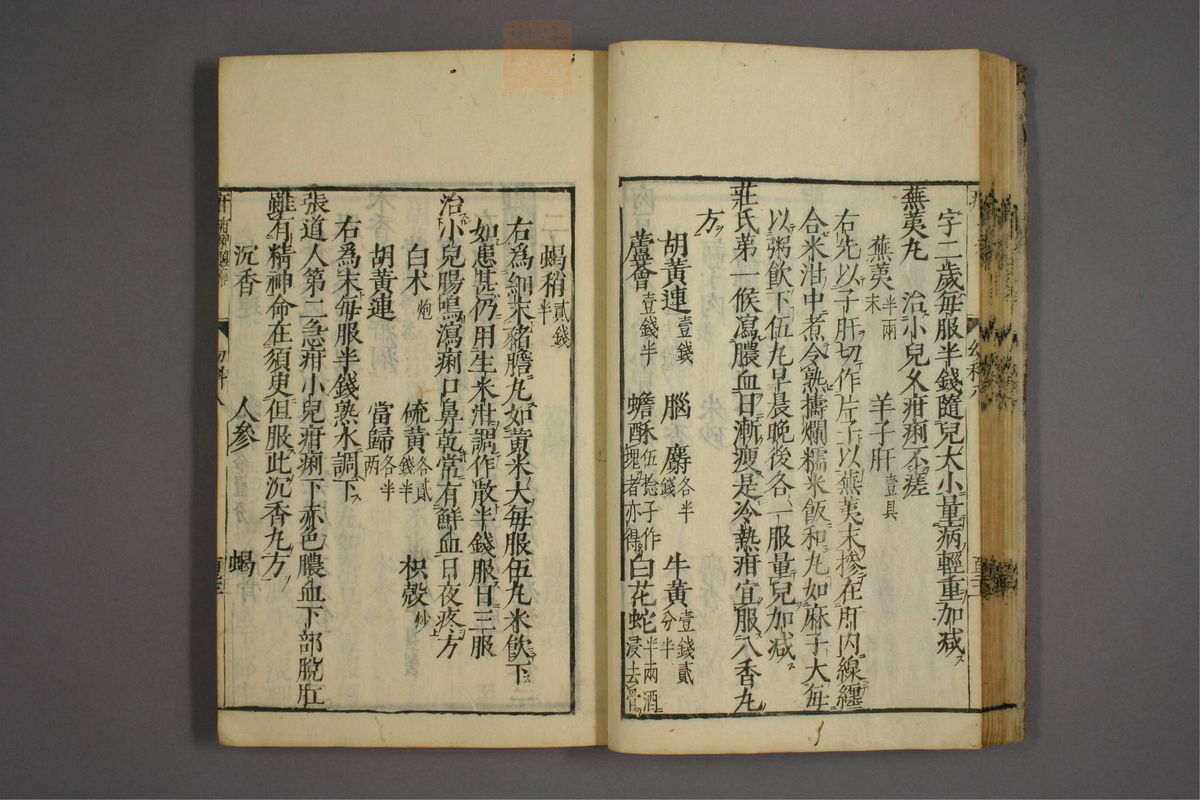 字二歲每服半錢隨兒大小量病輕重加减
蕪荑丸 治小兒久疳痢不瘥
蕪荑末半兩 羊子肝壹具
右先以子肝切作片子以蕪荑末摻在肝内線纏
合米泔中煮令熟擣爛糯米飯和丸如麻子大每
以粥飲下伍丸早晨晚後各一服量兒加减
莊氏第一候瀉膿血日漸瘦是冷熱疳宜服八香丸
方
胡黄連壹錢 腦 麝各半錢 牛黄壹錢貳分半
蘆薈壹錢半 蟾酥伍捻子作塊者亦得 白花蛇半兩酒浸去骨
蝎稍貳錢半
右爲細末猪膽丸如黄米大每服伍丸米飲下
如患甚仍用生米泔調作散半錢服日三服
治小兒腸鳴瀉痢口鼻乾常有鮮血日夜疼方
白术炮 硫黄各貳錢半 枳殼炒
胡黄連 當歸各半兩
右爲末每服半錢熟水調下
張道人第二急疳小兒疳痢下赤色膿血下部脫肛
雖有精神命在須臾但服此沉香丸方
沉香 人參 蝎